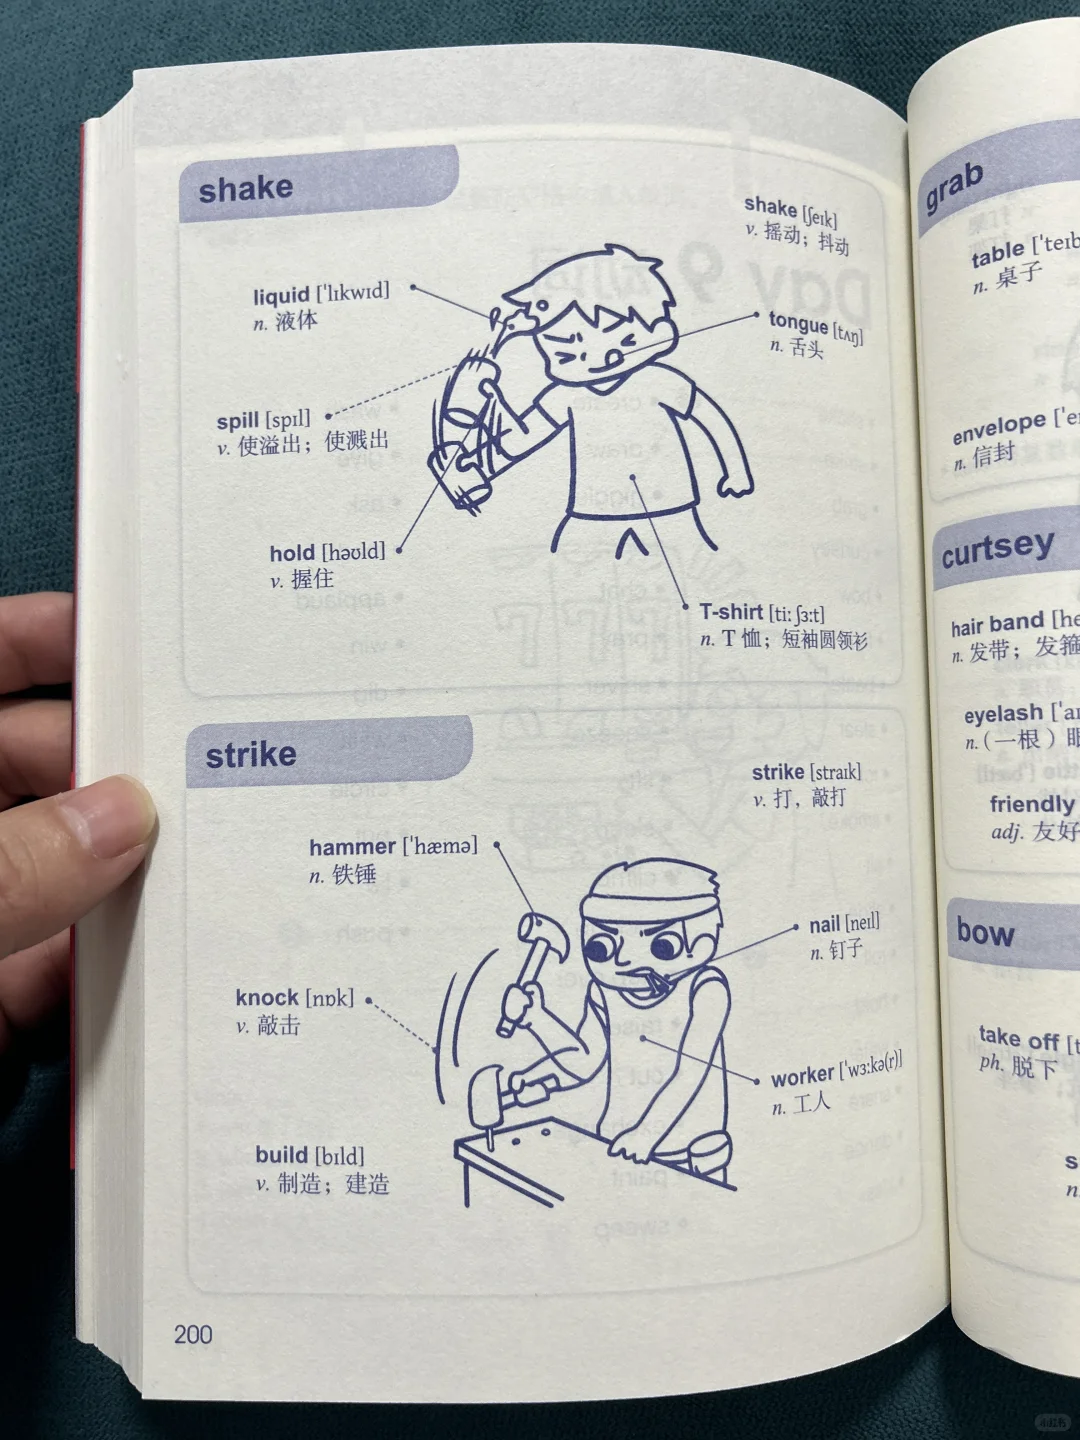 shake
shake [ʃeɪk]
v. 摇动；抖动
liquid [ˈlɪkwɪd]
n. 液体
tongue [tʌŋ]
n. 舌头
spill [spɪl]
v. 使溢出；使溅出
hold [həʊld]
v. 握住
T-shirt [tiːʃɜːt]
n. T 恤；短袖圆领衫
strike
strike [straɪk]
v. 打，敲打
hammer [ˈhæmə]
n. 铁锤
nail [neɪl]
n. 钉子
knock [nɒk]
v. 敲击
worker [ˈwɜːkə(r)]
n. 工人
build [bɪld]
v. 制造；建造
200
grab
table [ˈteɪb
n. 桌子
envelope [ˈe
n. 信封
curtsey
hair band [he
n. 发带；发箍
eyelash [ˈaɪ
n. (一根) 眼
friendly
adj. 友好
bow
take off [t
ph. 脱下
s
n.
小红书